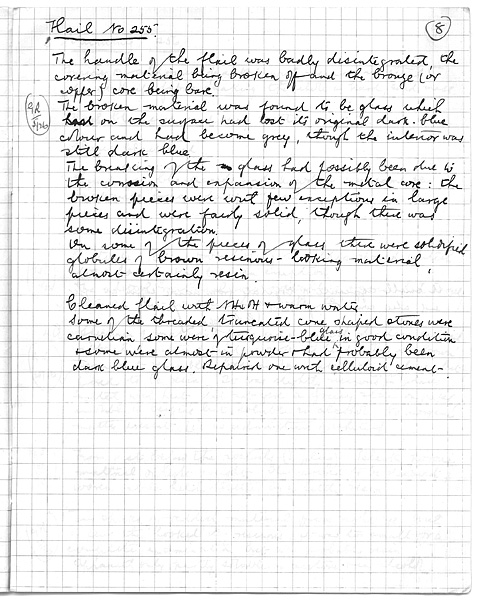 Flail No 255.
8
The handle of the flail was badly disintegrated, the
covering material being broken off and the bronze (or
copper) core being bare.
The broken material was found to be glass which
on the surface had lost its original dark-blue
colour and had become grey, though the interior was
still dark blue.
The breaking of the glass had possibly been due to
the corrosion and expansion of the metal core: the
broken pieces were with few exceptions in large
pieces and were fairly solid, though there was
some disintegration.
On some of the pieces of glass there were solidified
globules of brown resinous-looking material,
almost certainly resin.
Cleaned flail with NH4OH + warm water
Some of the threaded, truncated cone shaped stones were
carnelian some were of turquoise-blue glass in good condition
+ some were almost in powder + had probably been
dark blue glass. Repaired one with celluloid cement.